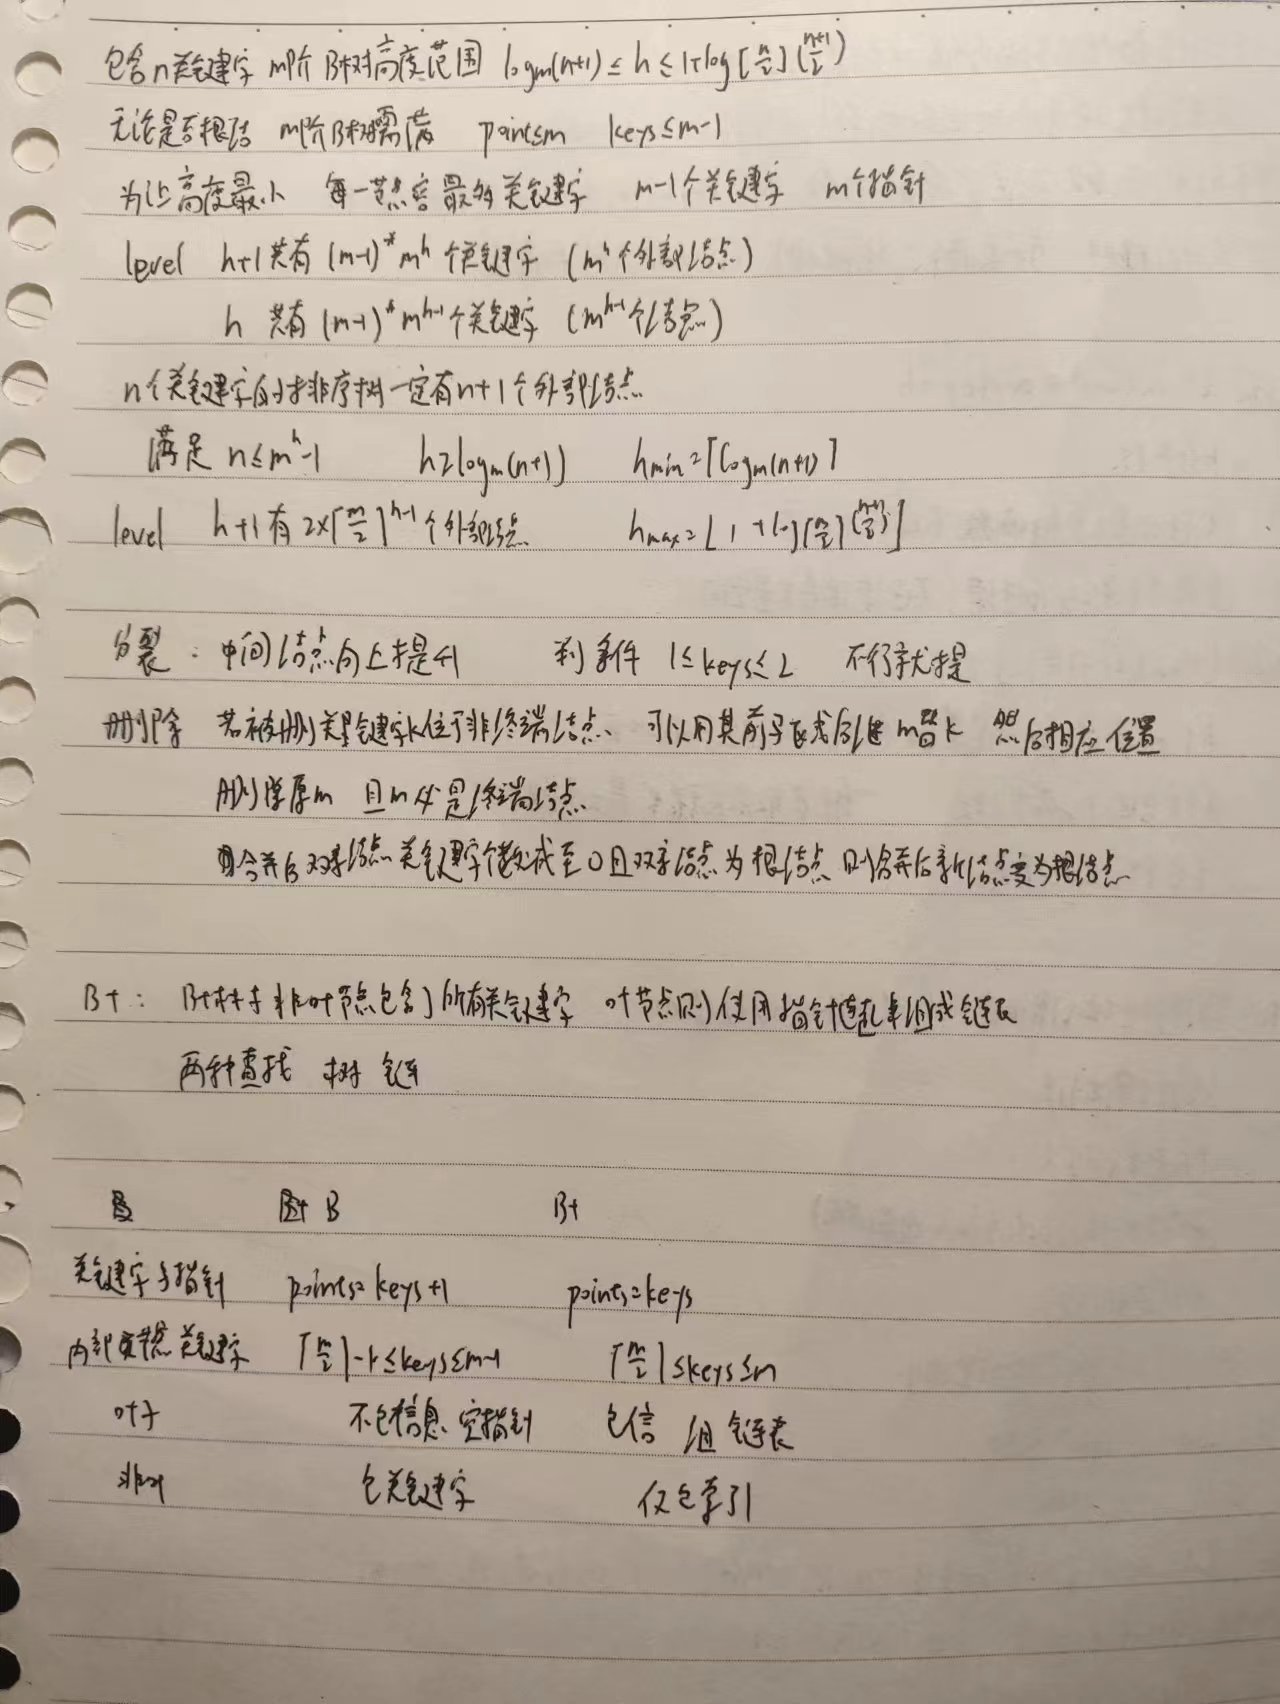 包含n关键字 m阶B树高度范围 logm(n+1) ≤ h ≤ 1+log⌈m/2⌉((n+1)/2)
无论是否根结 m阶B树需满 point≤m keys≤m-1
为让高度最小 每一节点容最多关键字 m-1个关键字 m个指针
level h+1共有 (m-1)*m^h 个关键字 (m^h个外部结点)
h 共有 (m-1)*m^(h-1)个关键字 (m^(h-1)个结点)
n个关键字的排序树一定有n+1个外部结点
满足 n≤m^h-1 h≥logm(n+1) hmin=⌈logm(n+1)⌉
level h+1有2×⌈m/2⌉^(h-1)个外部结点 hmax=⌊1+log⌈m/2⌉((n+1)/2)⌋
分裂: 中间结点向上提升 判条件 1≤keys≤2 不行就提
删除 若被删关键字k位于非终端结点、可以用其前驱或后继m替k 然后相应位置
删除原m 且m必是终端结点
合并后双亲结点关键字个数减至0且双亲结点为根结点 则合并后新结点变为根结点
B+: B+树非叶节点包含了所有关键字 叶节点则使用指针连起来组成链表
两种查找 树 链
B B+
关键字与指针 points=keys+1 points=keys
内部 关键字 ⌈m/2⌉-1≤keys≤m-1 ⌈m/2⌉≤keys≤m
叶子 不包信息、空指针 包信 组链表
非叶 包关键字 仅包索引